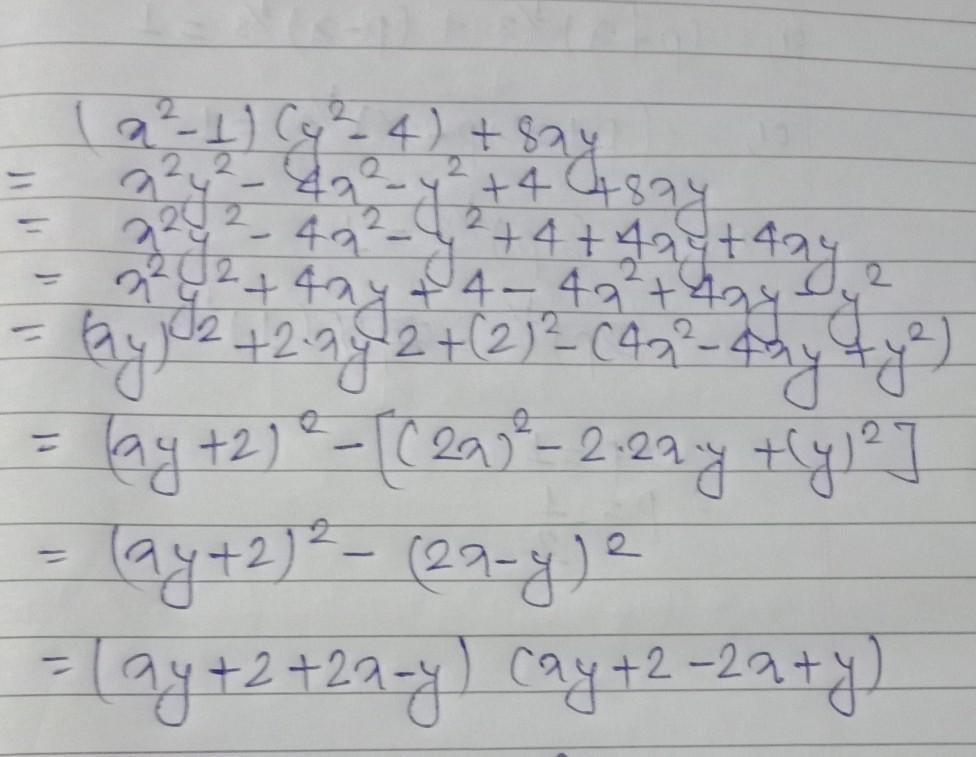 (x²-1) (y²-4) + 8xy
= x²y² - 4x² - y² + 4 + 8xy
= x²y² - 4x² - y² + 4 + 4xy + 4xy
= x²y² + 4xy + 4 - 4x² + 4xy - y²
= (xy)² + 2·xy·2 + (2)² - (4x² - 4xy + y²)
= (xy + 2)² - [(2x)² - 2·2x·y + (y)²]
= (xy + 2)² - (2x - y)²
= (xy + 2 + 2x - y) (xy + 2 - 2x + y)